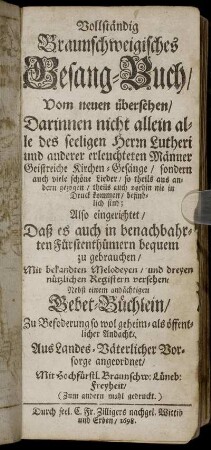 Vollständig
Braunschweigisches
Gesang-Buch/
Vom neuen übersehen/
Darinnen nicht allein al-
le des seeligen Herrn Lutheri
und anderer erleuchteten Männer
Geistreiche Kirchen-Gesänge/ sondern
auch viele schöne Lieder/ so theils aus an-
dern gezogen/ theils auch vorhin nie in
Druck kommen/ befind-
lich sind;
Also eingerichtet/
Daß es auch in benachbahr-
ten Fürstenthümern bequem
zu gebrauchen/
Mit bekandten Melodeyen/ und dreyen
nützlichen Registern versehen/
Nebst einem andächtigen
Gebet-Büchlein/
Zu Befoderung so wol geheim- als öffent-
licher Andacht/
Aus Landes-Väterlicher Vor-
sorge angeordnet/
Mit Hochfürstl. Braunschw: Lüneb:
Freyheit/
(Zum andern mahl gedruckt.)
Durch seel. C. Fr. Zilligers nachgel. Wittib
und Erben/ 1698.